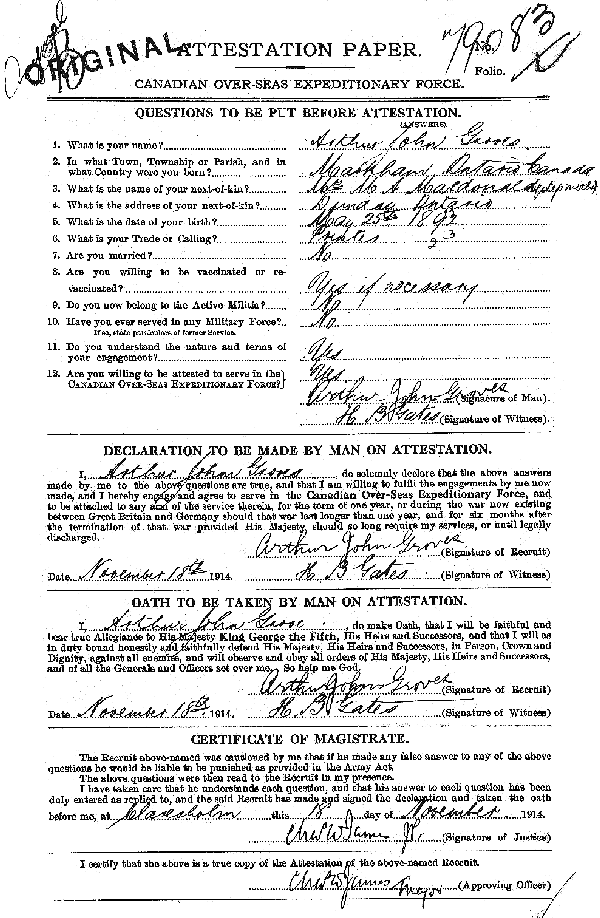 ORIGINAL
ATTESTATION PAPER.
No. 79083
Folio.
CANADIAN OVER-SEAS EXPEDITIONARY FORCE.
QUESTIONS TO BE PUT BEFORE ATTESTATION.
(ANSWERS)
1. What is your name? Arthur John Groves
2. In what Town, Township or Parish, and in
what Country were you born? Markham, Ontario Canada
3. What is the name of your next-of-kin? Mrs M A Macdonald
4. What is the address of your next-of-kin? Dundas Ontario
5. What is the date of your birth? May 25th 1893
6. What is your Trade or Calling?
7. Are you married? No
8. Are you willing to be vaccinated or re-
vaccinated? Yes if necessary
9. Do you now belong to the Active Militia? No
10. Have you ever served in any Military Force? No
If so, state particulars of former Service.
11. Do you understand the nature and terms of
your engagement? Yes
12. Are you willing to be attested to serve in the
CANADIAN OVER-SEAS EXPEDITIONARY FORCE? Yes.
Arthur John Groves (Signature of Man).
H B Gates (Signature of Witness).
DECLARATION TO BE MADE BY MAN ON ATTESTATION.
I, Arthur John Groves do solemnly declare that the above answers
made by me to the above questions are true, and that I am willing to fulfil the engagements by me now
made, and I hereby engage and agree to serve in the Canadian Over-Seas Expeditionary Force, and
to be attached to any arm of the service therein, for the term of one year, or during the war now existing
between Great Britain and Germany should that war last longer than one year, and for six months after
the termination of that war provided His Majesty should so long require my services, or until legally
discharged.
Arthur John Groves (Signature of Recruit)
Date November 18th 1914. H B Gates (Signature of Witness)
OATH TO BE TAKEN BY MAN ON ATTESTATION.
I, Arthur John Groves, do make Oath, that I will be faithful and
bear true Allegiance to His Majesty King George the Fifth, His Heirs and Successors, and that I will as
in duty bound honestly and faithfully defend His Majesty, His Heirs and Successors, in Person, Crown and
Dignity, against all enemies, and will observe and obey all orders of His Majesty, His Heirs and Successors,
and of all the Generals and Officers set over me. So help me God.
Arthur John Groves (Signature of Recruit)
Date November 18th 1914. H B Gates (Signature of Witness)
CERTIFICATE OF MAGISTRATE.
The Recruit above-named was cautioned by me that if he made any false answer to any of the above
questions he would be liable to be punished as provided in the Army Act.
The above questions were then read to the Recruit in my presence.
I have taken care that he understands each question, and that his answer to each question has been
duly entered as replied to, and the said Recruit has made and signed the declaration and taken the oath
before me, at Claresholm this 18 day of November 1914.
(Signature of Justice)
I certify that the above is a true copy of the Attestation of the above-named Recruit.
(Approving Officer)